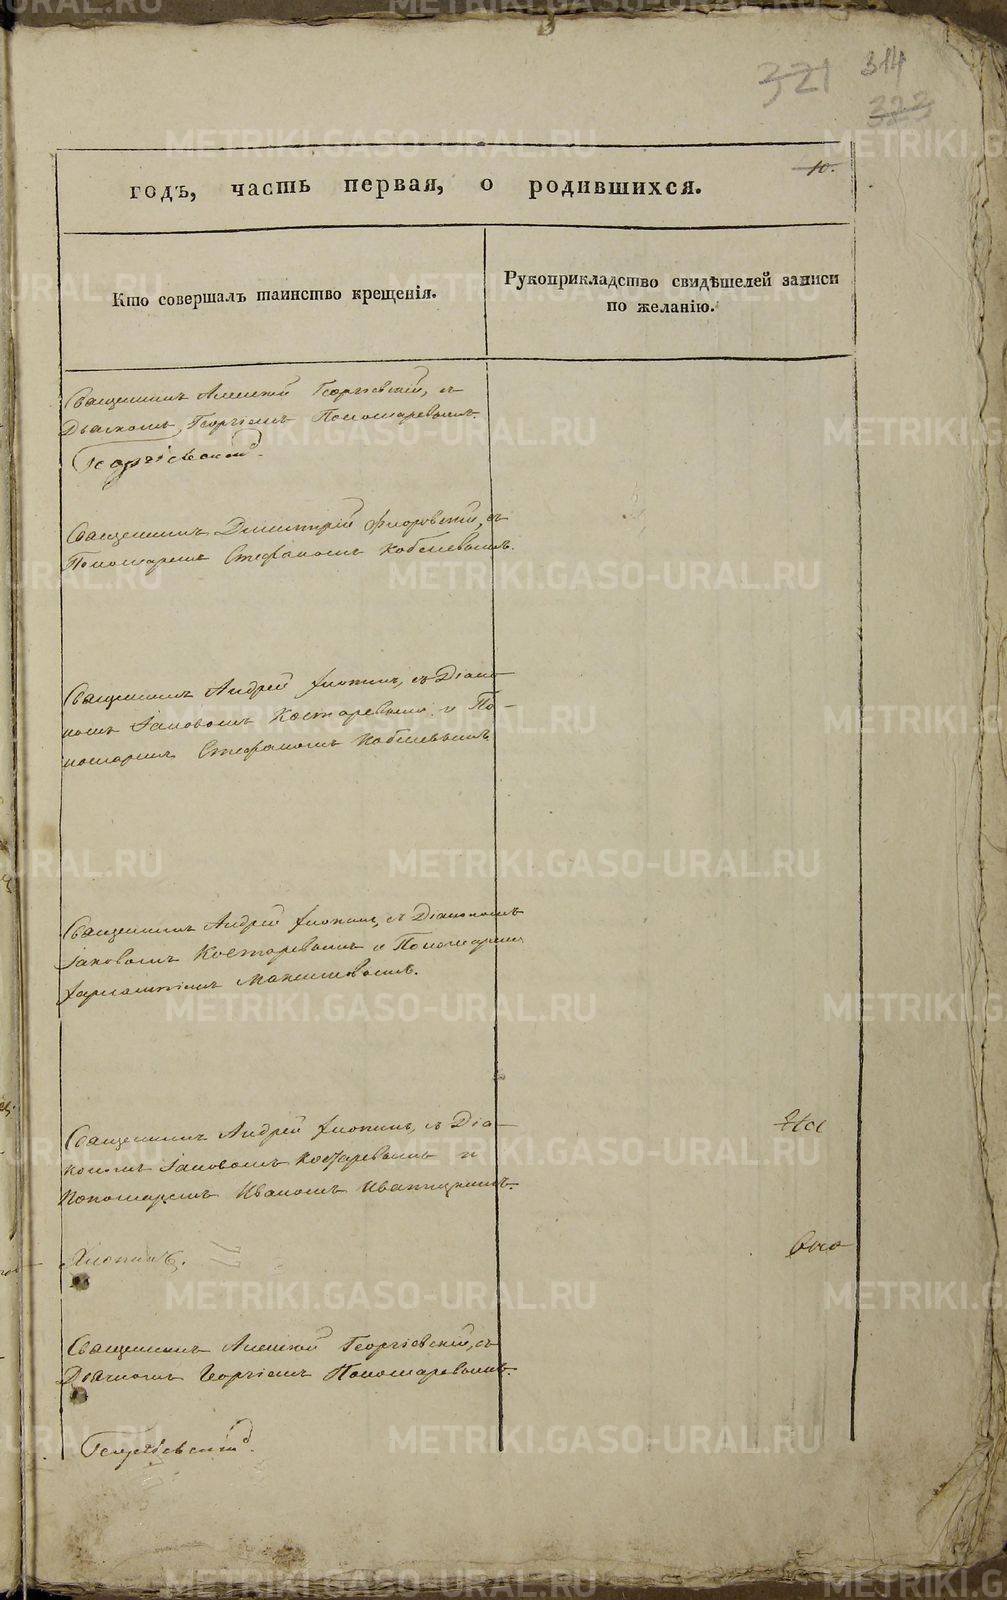 321 314
323
10.
годъ, часть первая, о родившихся.
Кто совершалъ таинство крещенія.
Рукоприкладство свидѣтелей записи
по желанію.
Священникъ Алексей Георгіевскій, съ
Дьячкомъ Георгіемъ Пономаревымъ.
Георгіевскій.
Священникъ Димитрій Флоровскій, съ
Пономаремъ Стефаномъ Кобелевымъ.
Священникъ Андрей Хлопинъ, съ Діако-
номъ Іаковомъ Костаревымъ и По-
номаремъ Стефаномъ Кобелевымъ
Священникъ Андрей Хлопинъ, съ Діакономъ
Іаковомъ Костаревымъ и Пономаремъ
Максимовымъ.
Священникъ Андрей Хлопинъ, съ Діа-
кономъ Іаковомъ Костаревымъ и
Пономаремъ Иваномъ
Хлопинъ.
Священникъ Алексей Георгіевскій, съ
Дьячкомъ Георгіемъ Пономаревымъ.
Георгіевскій.
METRIKI.GASO-URAL.RU